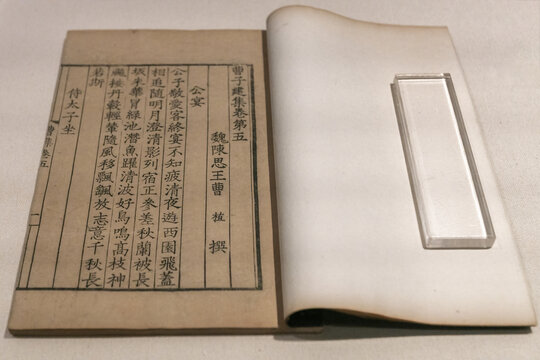 曹子建集卷第五
魏陳思王曹 植 撰
公宴
公子敬愛客終宴不知疲清夜遊西園飛蓋
相追隨明月澄清影列宿正參差秋蘭被長
坂朱華冒綠池潛魚躍清波好鳥鳴髙枝神
飈接丹轂輕輦隨風移飄颻放志意千秋長
若斯
侍太子坐
曹集卷五
一